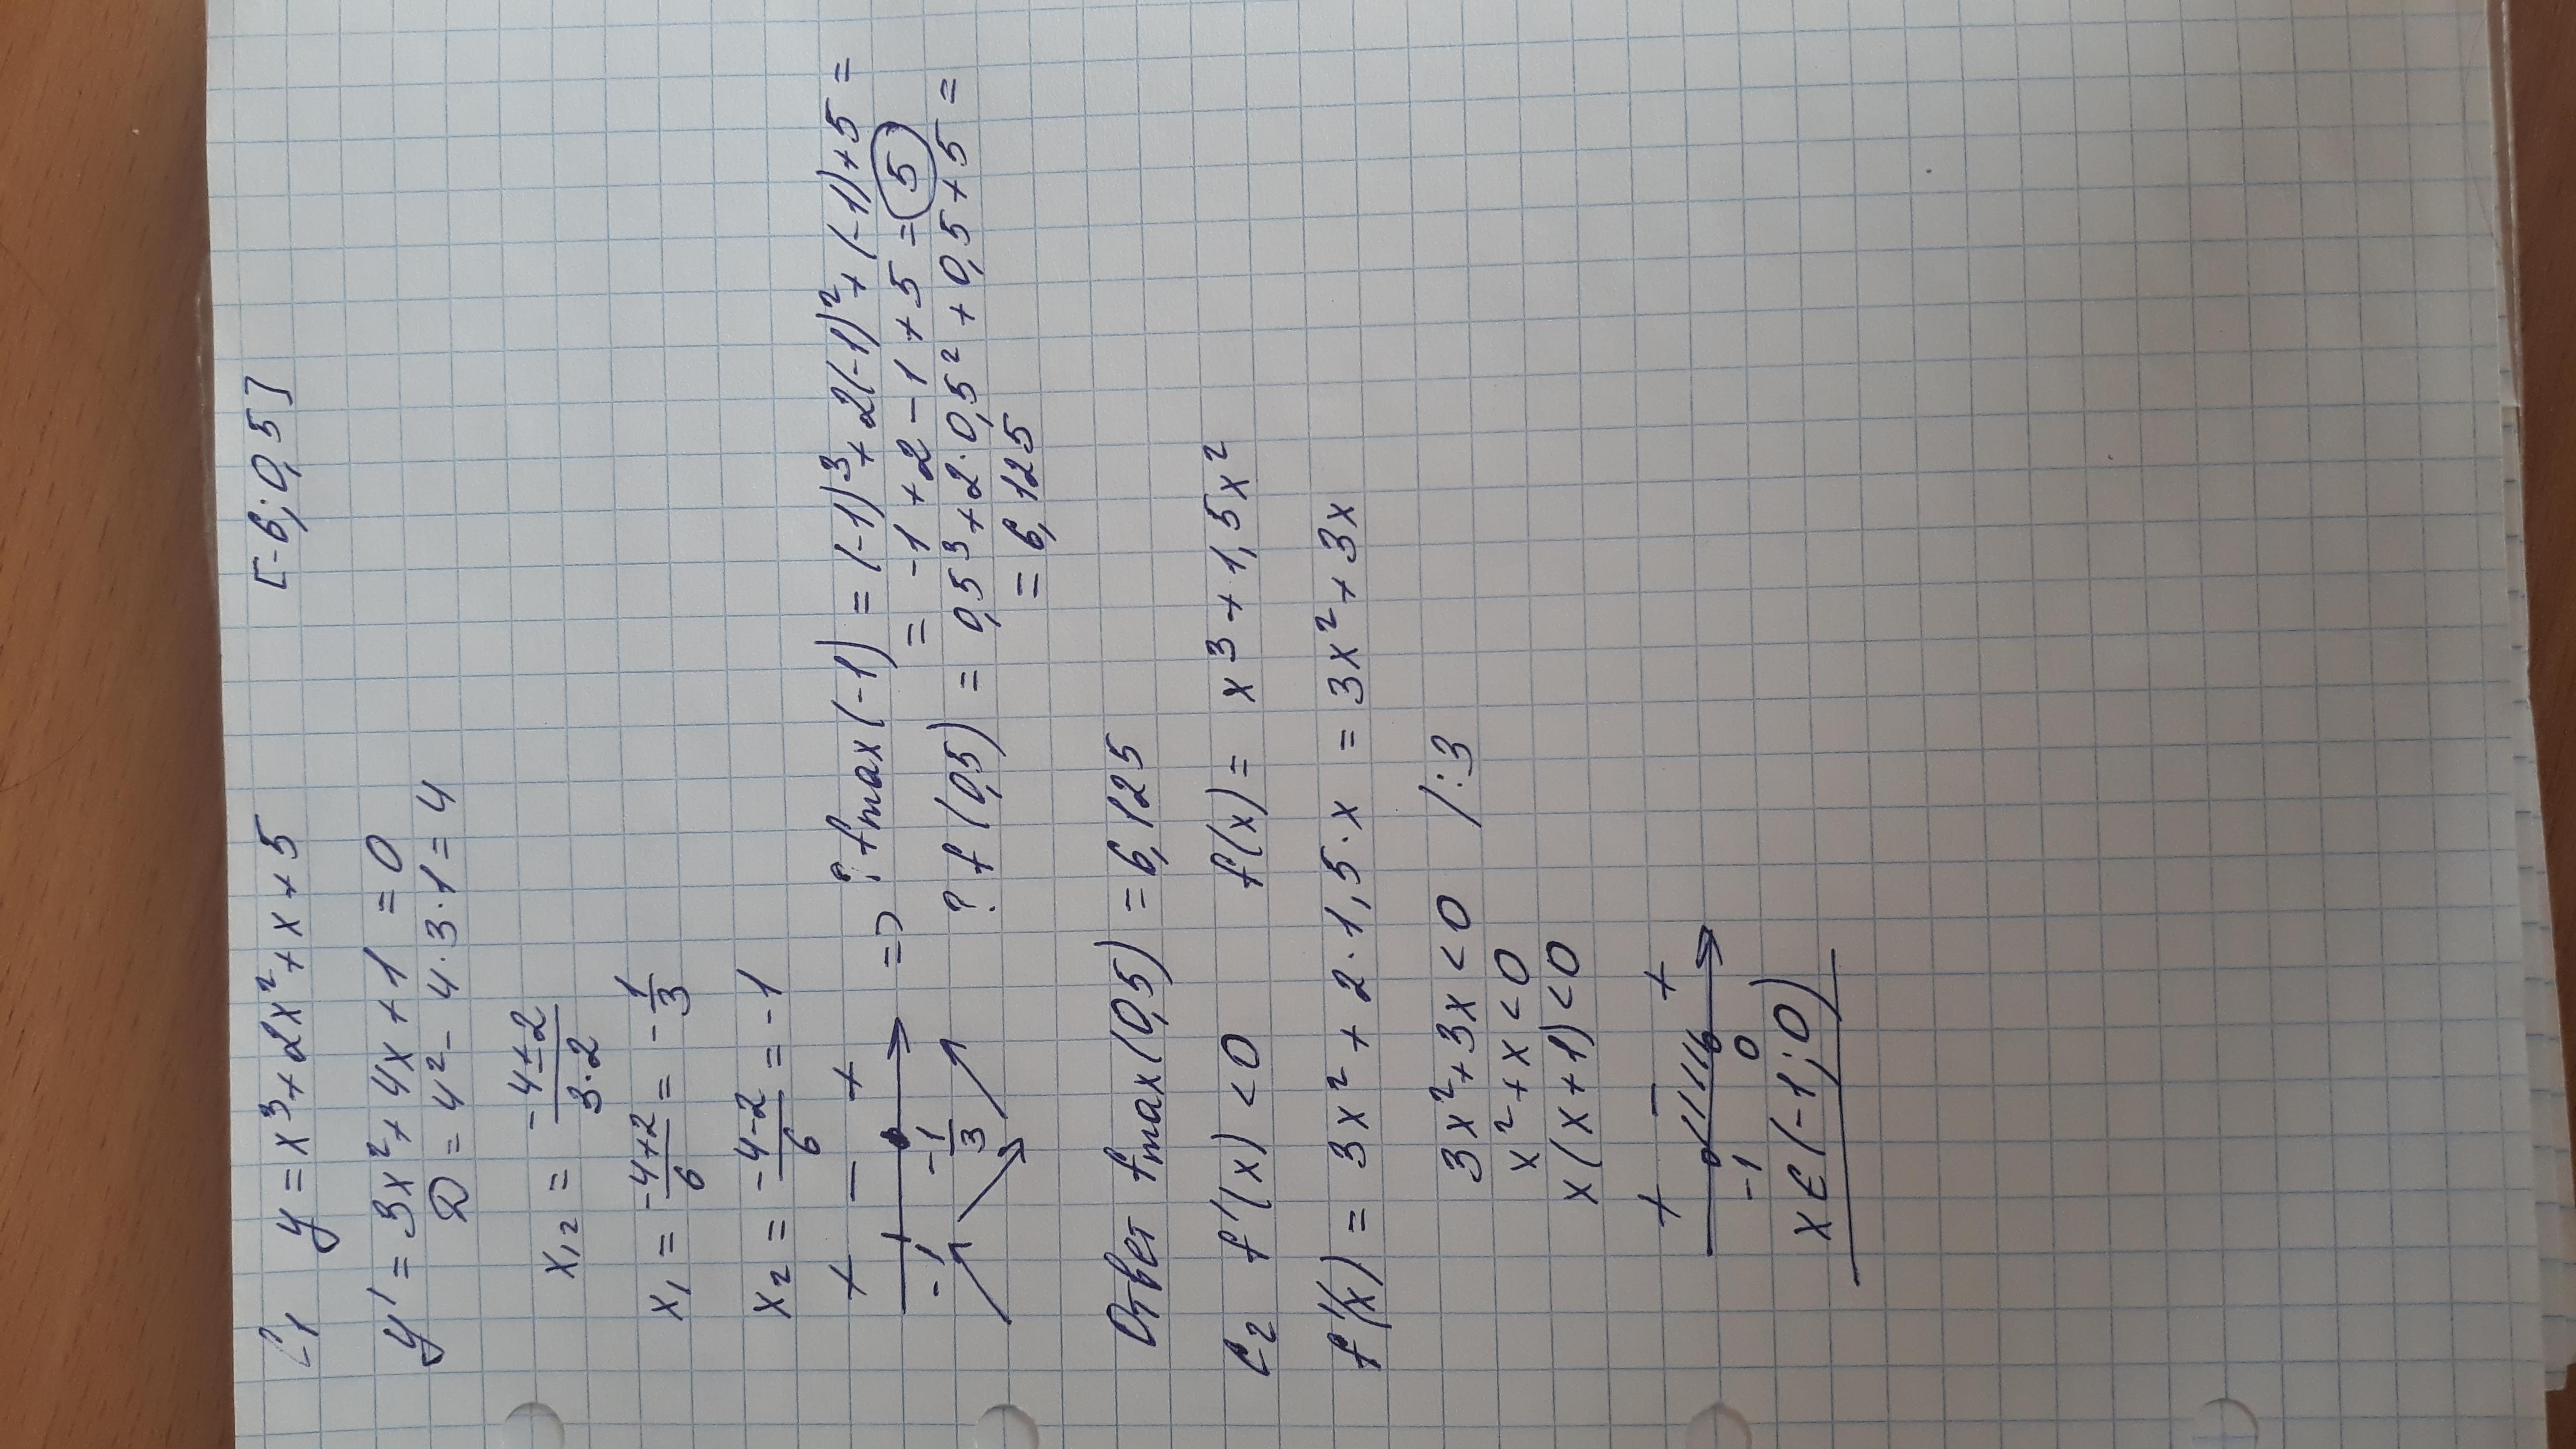 C1 y = x³ + 2x² + x + 5 [-6; 0,5]
y' = 3x² + 4x + 1 = 0
D = 4² - 4·3·1 = 4
x₁,₂ = (-4 ± 2)/(3·2)
x₁ = (-4+2)/6 = -1/3
x₂ = (-4-2)/6 = -1
+ - + => ? fmax(-1) = (-1)³ + 2(-1)² + (-1) + 5 =
-1 -1/3 = -1 + 2 - 1 + 5 = 5
? f(0,5) = 0,5³ + 2·0,5² + 0,5 + 5 =
= 6,125
Ответ fmax(0,5) = 6,125
C2 f'(x) < 0 f(x) = x³ + 1,5x²
f'(x) = 3x² + 2·1,5·x = 3x² + 3x
3x² + 3x < 0 /:3
x² + x < 0
x(x+1) < 0
+ - +
-1 0
x ∈ (-1; 0)